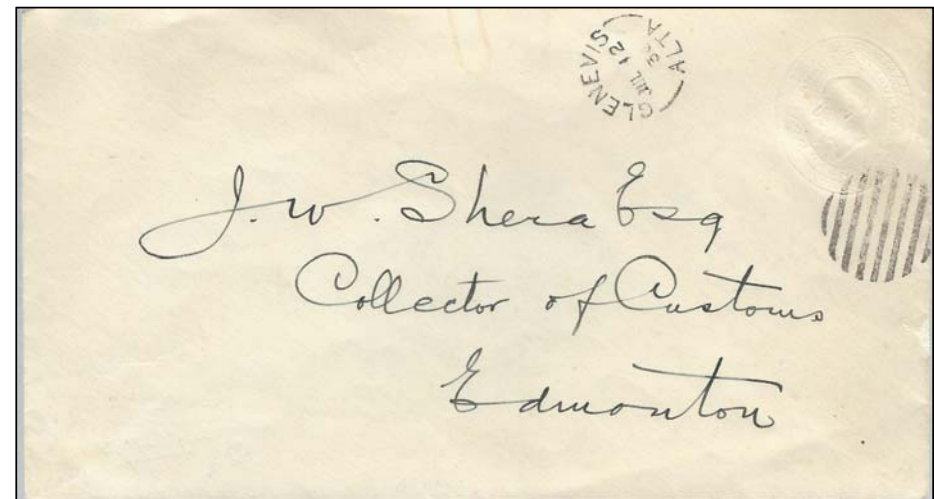 GLENEVIS
JUL 12
ALTA
J. W. Shera Esq
Collector of Customs
Edmonton